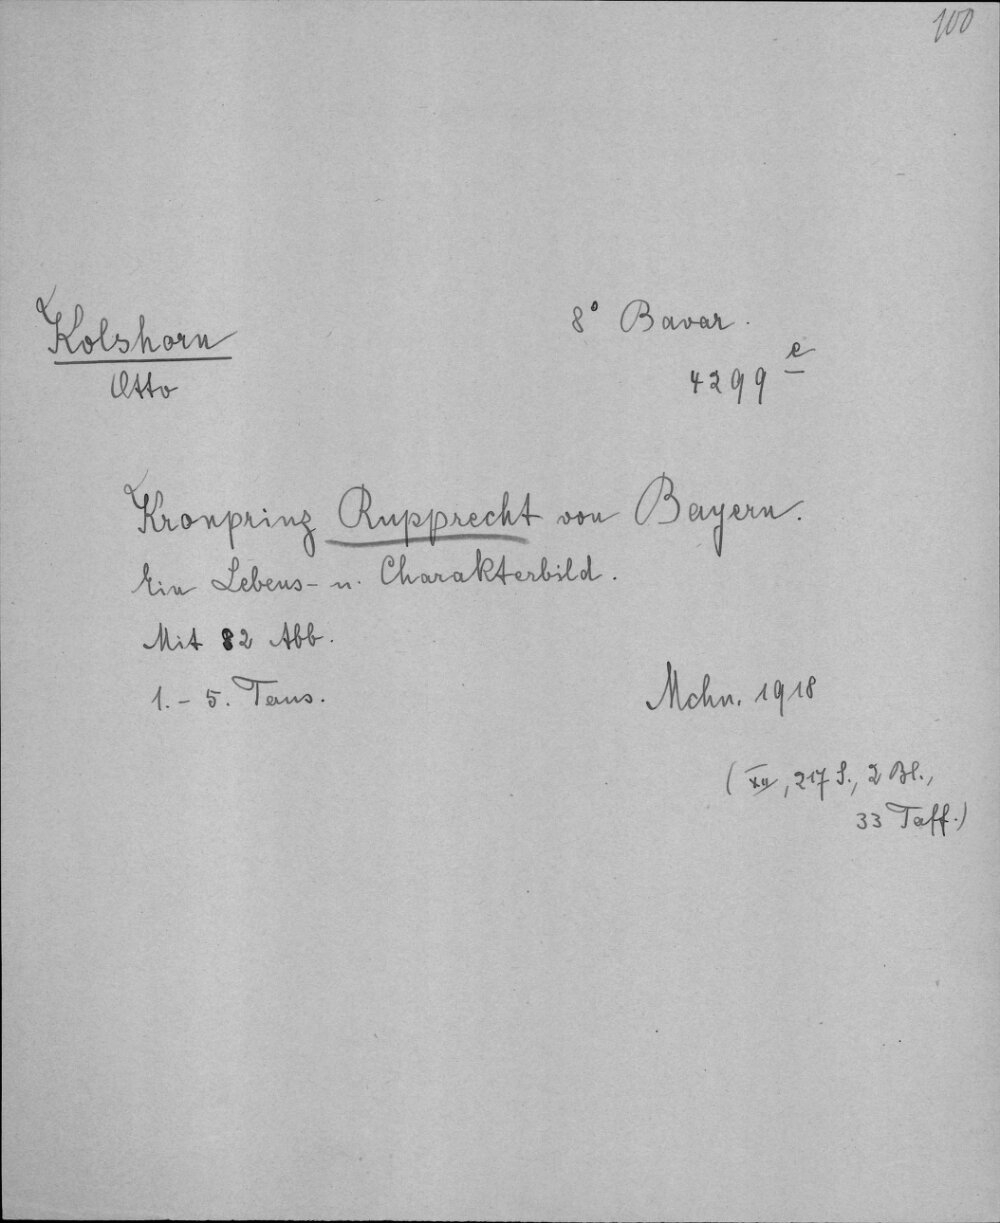 100
Kolshorn
8° Bavar.
Otto
4299 e
Kronprinz Rupprecht von Bayern.
Ein Lebens- u. Charakterbild.
Mit 82 Abb.
1.- 5. Taus.
Mchn. 1918
(XII, 217 S., 2 Bl.,
33 Taff.)